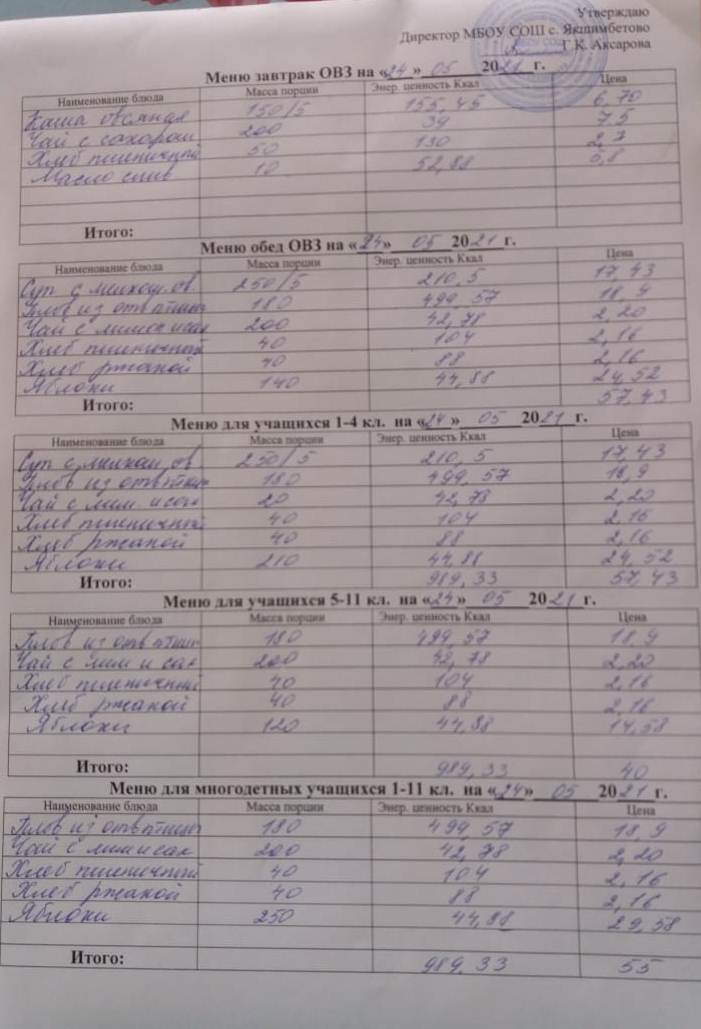 Утверждаю
Директор МБОУ СОШ с. Якшимбетово
Г.К. Аксарова
Меню завтрак ОВЗ на «24» 05 2021 г.
Наименование блюда Масса порции Энер. ценность Ккал Цена
Каша овсяная 150/5 155,45 6,70
Чай с сахаром 200 39 7,5
Хлеб пшеничный 50 130 2,7
Масло слив 10 52,88 5,8
Итого:
Меню обед ОВЗ на «24» 05 2021 г.
Наименование блюда Масса порции Энер. ценность Ккал Цена
Суп с 250/5 210,5 17,43
Плов из отв птицы 180 499,57 18,9
Чай с лимон и сах 200 42,78 2,20
Хлеб пшеничный 40 104 2,16
Хлеб ржаной 40 88 2,16
Яблоки 140 44,88 24,52
Итого: 57,43
Меню для учащихся 1-4 кл. на «24» 05 2021 г.
Наименование блюда Масса порции Энер. ценность Ккал Цена
Суп с 250/5 210,5 17,43
Плов из отв птицы 180 499,57 18,9
Чай с лим и сах 20 42,78 2,20
Хлеб пшеничный 40 104 2,16
Хлеб ржаной 40 88 2,16
Яблоки 210 44,88 24,52
Итого: 989,33 57,43
Меню для учащихся 5-11 кл. на «24» 05 2021 г.
Наименование блюда Масса порции Энер. ценность Ккал Цена
Плов из отв птицы 180 499,57 18,9
Чай с лим и сах 200 42,78 2,20
Хлеб пшеничный 40 104 2,16
Хлеб ржаной 40 88 2,16
Яблоки 120 44,88 14,58
Итого: 989,33 40
Меню для многодетных учащихся 1-11 кл. на «24» 05 2021 г.
Наименование блюда Масса порции Энер. ценность Ккал Цена
Плов из отв птицы 180 499,57 18,9
Чай с лим и сах 200 42,78 2,20
Хлеб пшеничный 40 104 2,16
Хлеб ржаной 40 88 2,16
Яблоки 250 44,88 29,58
Итого: 989,33 55